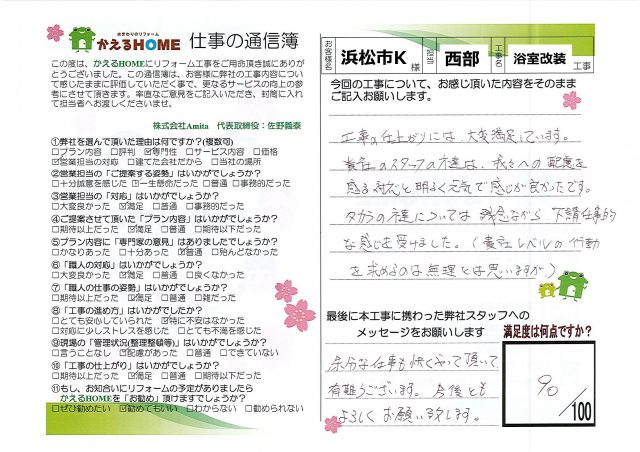 水まわりのリフォーム
かえるHOME 仕事の通信簿
この度は、かえるHOMEにリフォーム工事をご用命頂き誠にありが
とうございました。この通信簿は、お客様に弊社の工事内容につい
て感じたままに評価していただく事で、更なるサービスの向上の参
考にさせて頂きます。率直なご意見をご記入いただき、封筒に入れ
て担当者へお渡しくださいませ。
株式会社Amita 代表取締役：佐野義泰
①弊社を選んで頂いた理由は何ですか?(複数可)
□プラン内容 □評判 ☑専門性 □サービス内容 □価格
☑営業担当の対応 □建てた会社だから □当社の場所
②営業担当の「ご提案する姿勢」はいかがでしょうか？
□十分誠意を感じた ☑一生懸命だった □普通 □事務的だった
③営業担当の「対応」はいかがでしょうか？
□大変良かった ☑満足 □普通 □事務的だった
④ご提案させて頂いた「プラン内容」はいかがでしょうか？
□期待以上だった ☑満足 □普通 □期待以下だった
⑤プラン内容に「専門家の意見」はありましたでしょうか？
□かなりあった □十分あった ☑普通 □殆んどなかった
⑥「職人の対応」はいかがでしょうか？
□大変良かった ☑満足 □普通 □良くなかった
⑦「職人の仕事の姿勢」はいかがでしょうか？
□期待以上だった □満足 ☑普通 □雑だった
⑧「工事の進め方」はいかがでしたか？
□とても安心していられた ☑特に不安はなかった
□対応に少しストレスを感じた □とても不満を感じた
⑨現場の「管理状況(整理整頓等)」はいかがでしょうか？
□言うことなし ☑配慮があった □普通 □できていない
⑩「工事の仕上がり」はいかがでしょうか？
□期待以上だった ☑満足 □普通 □期待以下だった
⑪もし、お知合いにリフォームの予定がありましたら
かえるHOMEを「お勧め」頂けますでしょうか？
□ぜひ勧めたい ☑勧めてもいい □わからない □勧められない
お客様名 浜松市K 様 西部 工事名 浴室改装 工事
今回の工事について、お感じ頂いた内容をそのまま
ご記入お願いします。
工事の仕上がりには、大変満足しています。
貴社のスタッフの方達は、我々への配慮を
感る対応と明るく元気で感じが良かったです。
タカラの方達については残念ながら、下請仕事的
な感じを受けました。(貴社レベルの行動
を求めるのは無理とは思いますが)
最後に本工事に携わった弊社スタッフへの
メッセージをお願いします
満足度は何点ですか？
余分な仕事も快くやって頂いて
有難うございます。今後とも
よろしくお願い致します。
90/100